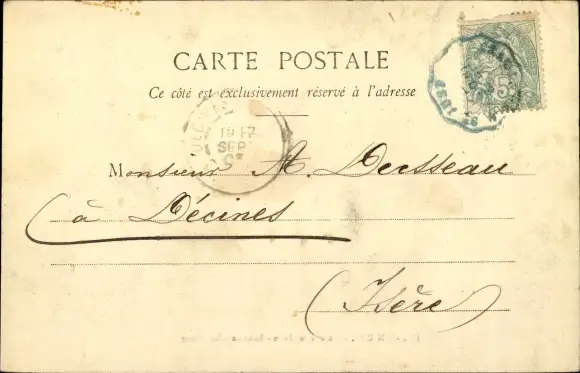 CARTE POSTALE
Ce côté est exclusivement réservé à l'adresse
SEP
Monsieur A. Dusseau
à Décines
(Isère)
5